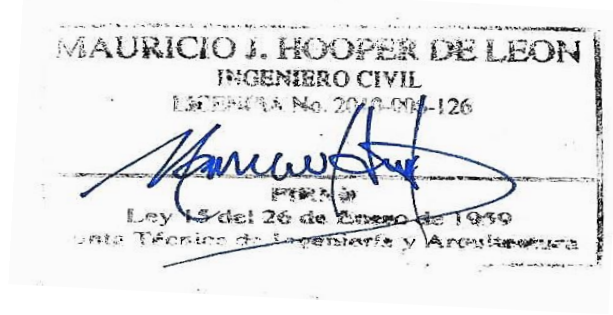 MAURICIO J. HOOPER DE LEON
INGENIERO CIVIL
LICENCIA No. 126
FIRMA
Ley 15 del 26 de Enero de 1959
Junta Técnica de Ingeniería y Arquitectura